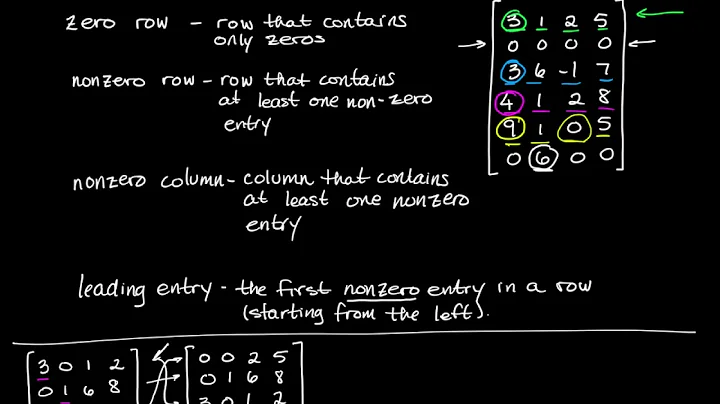 zero row - row that contains
only zeros
nonzero row - row that contains
at least one non-zero
entry
nonzero column - column that contains
at least one nonzero
entry
leading entry - the first nonzero entry in a row
(starting from the left).
3 1 2 5
0 0 0 0
3 6 -1 7
4 1 2 8
9 1 0 5
0 6 0 0
3 0 1 2
0 1 6 8
0 0 2 5
0 1 6 8
3 0 1 2